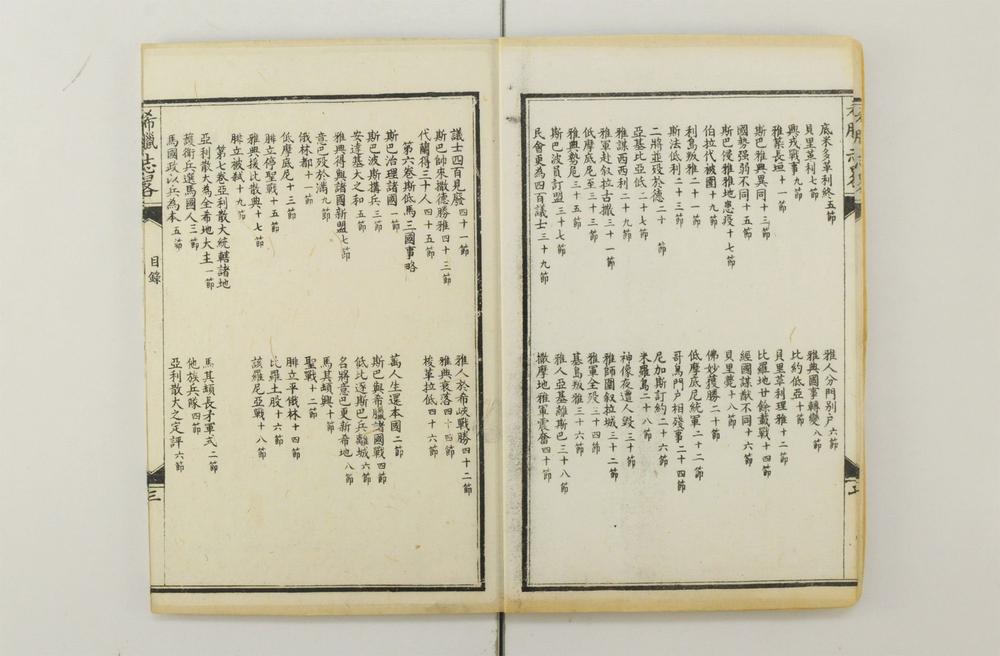 底米多革利終五節
雅人分門別户六節
貝里並利七節
雅典國事轉變八節
興戎戰事九節
比約低亞十節
雅築長垣十一節
貝里革利理雅十二節
斯巴雅典異同十三節
比羅地廿餘載戰十四節
國勢强弱不同十五節
經國謀猷不同十六節
斯巴侵雅雅地患疫十七節
貝里薨十八節
伯拉代被圍十九節
佛妙獲勝二十節
利島叛雅二十一節
低摩底尼統軍二十二節
斯法低利二十三節
哥島門户相殘事二十四節
二將並歿於德二十 節
尼加斯訂約二十六節
亞基比亞低二十七節
米羅島二十八節
雅謀西西利二十九節
神像夜遭人毀三十節
雅軍赴叙拉古撒三十一節
雅師圍叙拉城三十二節
低摩底尼至三十三節
雅軍全歿三十四節
雅典勢危三十五節
基島叛雅三十六節
斯巴波員訂盟三十七節
雅人亞基離斯巴三十八節
民會更為四百議士三十九節
撒摩地雅軍震奮四十節
議士四百見廢四十一節
雅人於希峽戰勝四十二節
斯巴帥朱撒德勝雅四十三節
雅典衰落四十四節
代蘭得三十人四十五節
梭革拉低四十六節
第六卷斯低馬三國事略
斯巴治理諸國一節
萬人生還本國二節
斯巴波斯搆兵三節
斯巴與希臘諸國戰四節
安達基大之和五節
低比逐斯巴兵離城六節
雅典得與諸國新盟七節
名將意巴更新希地八節
意巴歿於滿九節
馬其頓興十節
俄林都十一節
聖戰十二節
低摩底尼十三節
腓立平俄林十四節
腓立停聖戰十五節
比羅土股十六節
雅典援比散典十七節
該羅尼亞戰十八節
腓立被弒十九節
第七卷亞利散大統轄諸地
亞利散大為全希地大主一節
馬其頓長矛軍式二節
護衛兵選馬國人三節
他族兵隊四節
馬國政以兵為本五節
亞利散大之定評六節
希臘志略
目錄
三